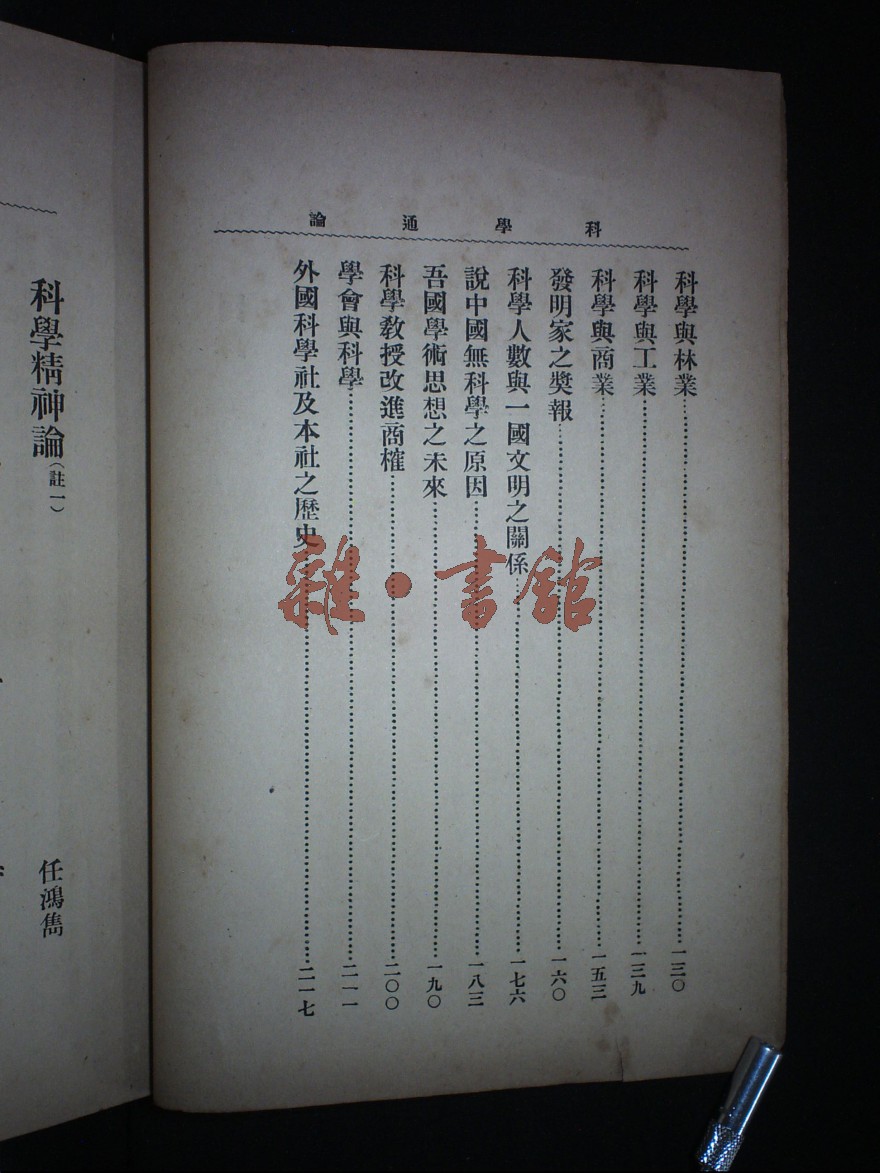 科學通論
科學與林業……一三〇
科學與工業……一三九
科學與商業……一五三
發明家之獎報……一六〇
科學人數與一國文明之關係……一七六
說中國無科學之原因……一八三
吾國學術思想之未來……一九〇
科學教授改進商榷……二〇〇
學會與科學……二一一
外國科學社及本社之歷史……二一七
科學精神論(註一)
任鴻雋
雜·書館